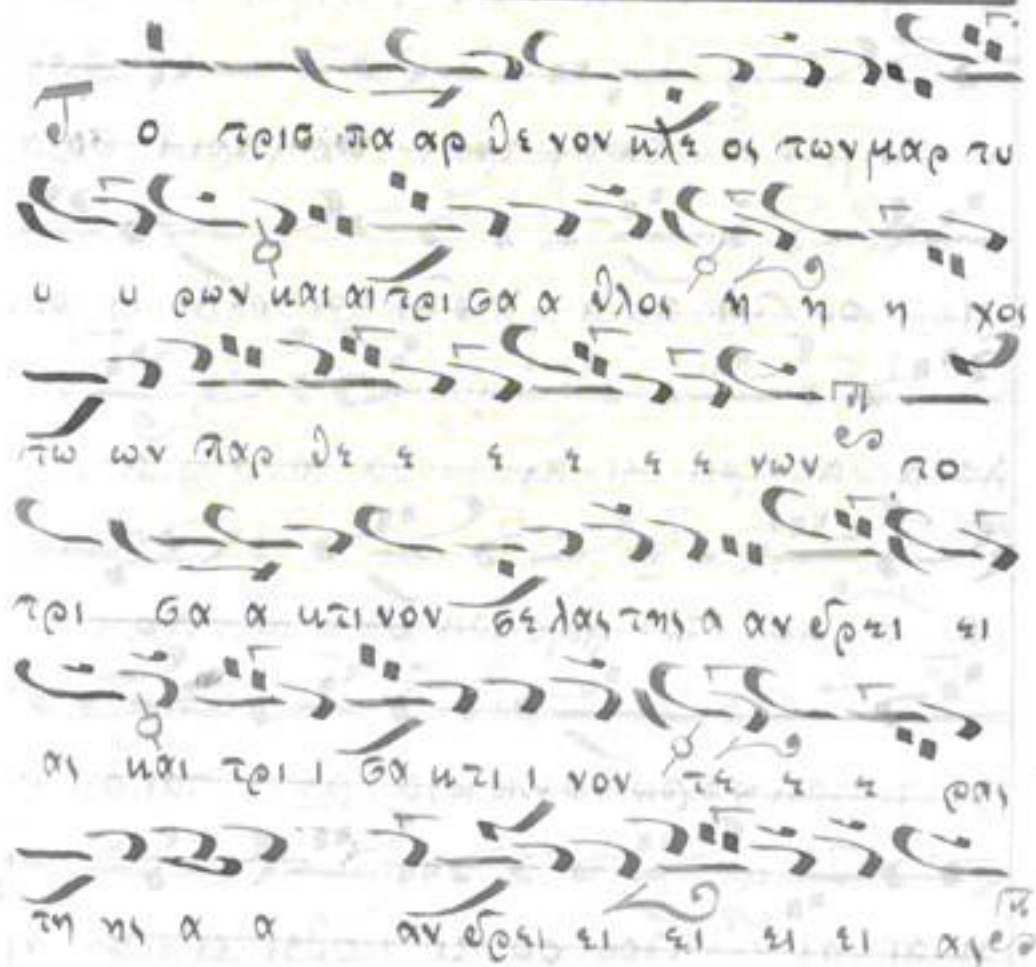 Το τρισ πα αρ θε νον κλε ος των μαρ τυ
υ υ ρων και αι τρι σα α θλος η η η χος
τω ων παρ θε ε ε ε ε ε νων το
τρι σα α κτι νον σε λας της α αν δρει ει
ας και τρι ι σα κτι ι νον τε ε ε ρας
τη ης α α αν δρει ει ει ει ει ας